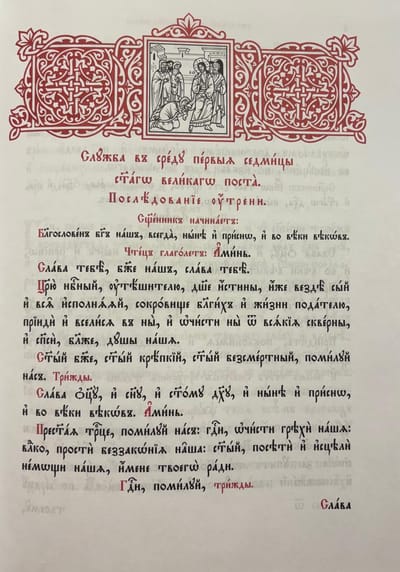 Слу́жба въ сре́дꙋ пе́рвыѧ седми́цы
ст҃а́гѡ вели́кагѡ поста̀.
Послѣ́дованїе ᲂу҆́трени.
Сщ҃е́нникъ начина́етъ:
Бл҃гослове́нъ бг҃ъ на́шъ, всегда̀, ны́нѣ и҆ при́снѡ, и҆ во вѣ́ки вѣкѡ́въ.
Чте́цъ глаго́летъ: А҆ми́нь.
Сла́ва тебѣ̀, бж҃е на́шъ, сла́ва тебѣ̀.
Цр҃ю̀ нбⷭ҇ный, ᲂу҆тѣ́шителю, дш҃е и҆́стины, и҆́же вездѣ̀ сы́й
и҆ всѧ̑ и҆сполнѧ́ѧй, сокро́вище бл҃ги́хъ и҆ жи́зни пода́телю,
прїидѝ и҆ всели́сѧ въ ны̀, и҆ ѡ҆чи́сти ны̀ ѿ всѧ́кїѧ скве́рны,
и҆ сп҃сѝ, бл҃же, дꙋ́шы на́шѧ.
Ст҃ы́й бж҃е, ст҃ы́й крѣ́пкїй, ст҃ы́й безсме́ртный, поми́лꙋй
на́съ. Три́жды.
Сла́ва ѻ҆ц҃ꙋ̀, и҆ сн҃ꙋ, и҆ ст҃о́мꙋ дх҃ꙋ, и҆ ны́нѣ и҆ при́снѡ,
и҆ во вѣ́ки вѣкѡ́въ. А҆ми́нь.
Прест҃а́ѧ трⷪ҇це, поми́лꙋй на́съ: гдⷭ҇и, ѡ҆чи́сти грѣхѝ на́шѧ:
влⷣко, простѝ беззакѡ́нїѧ на̑ша: ст҃ы́й, посѣтѝ и҆ и҆сцѣлѝ
не́мѡщи на́шѧ, и҆́мене твоегѡ̀ ра́ди.
Гдⷭ҇и, поми́лꙋй, три́жды.
Сла́ва